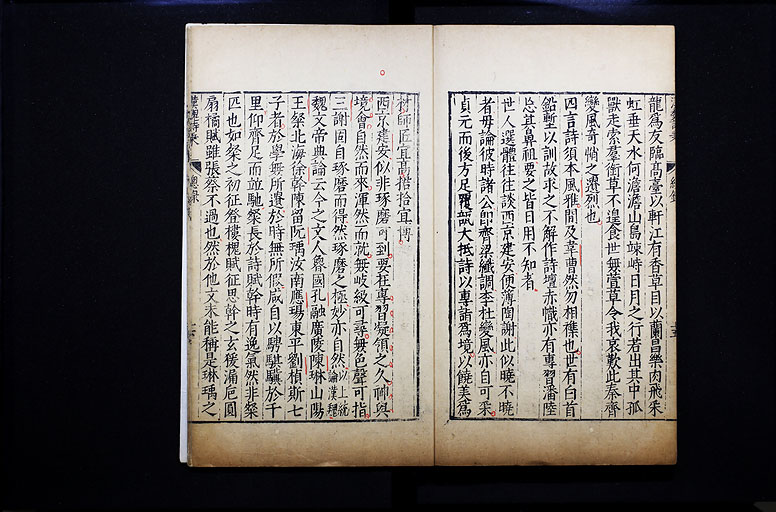 龍爲友臨高臺以軒江有香草目以蘭昌樂肉飛朱
虹垂天水何澹澹山島竦峙日月之行若出其中孤
獸走索羣銜草不遑食世無萱草令我哀歎此秦齊
變風奇悄之遺烈也
四言詩須本風雅間及韋曹然勿相樵也世有白首
鉛塹以訓故求之不解作詩壇赤幟亦有專習潘陸
忘其鼻祖要之皆日用不知者
世人選體往往談西京建安便薄陶謝此似曉不曉
者毋論彼時諸公即齊梁纖調李杜變風亦自可采
貞元而後方足覆瓿大抵詩以專詣爲境以饒美爲
材師匠宜高捃拾宜博
西京建安似非琢磨可到要在專習凝領之久神與
境會自然而來渾然而就無岐級可尋無色聲可指
三謝固自琢磨而得然琢磨之極妙亦自然以上統論漢魏
魏文帝典論云今之文人魯國孔融廣陵陳琳山陽
王粲北海徐幹陳留阮瑀汝南應瑒東平劉楨斯七
子者於學無所遺於時無所假咸自以騁騏驥於千
里仰齊足而並馳粲長於詩賦幹時有逸氣然非粲
匹也如粲之初征登樓槐賦征思幹之玄猨漏卮圓
扇橘賦雖張蔡不過也然於他文未能稱是琳瑀之